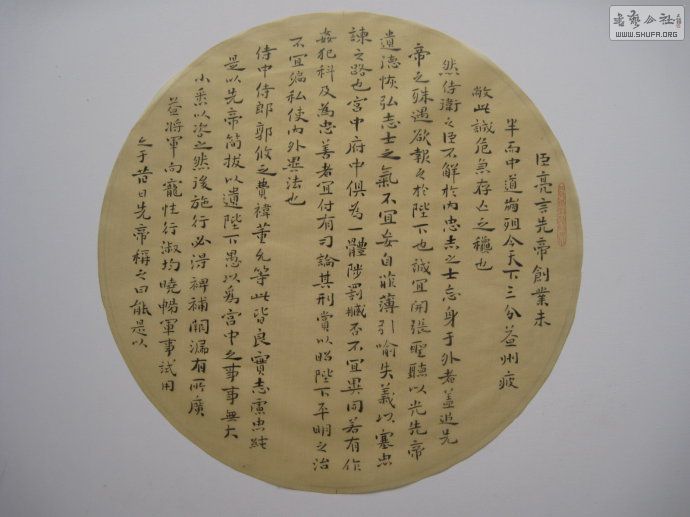 臣亮言先帝創業未
半而中道崩殂今天下三分益州疲
敝此誠危急存亡之穐也
然侍衛之臣不懈於內忠志之士忘身于外者蓋追先
帝之殊遇欲報之於陛下也誠宜開張聖聽以光先帝
遺德恢弘志士之氣不宜妄自菲薄引喻失義以塞忠
諫之路也宮中府中俱為一體陟罰臧否不宜異同若有作
姦犯科及為忠善者宜付有司論其刑賞以昭陛下平明之治
不宜偏私使內外異法也
侍中侍郎郭攸之費禕董允等此皆良實志慮忠純
是以先帝簡拔以遺陛下愚以為宮中之事事無大
小悉以咨之然後施行必得裨補闕漏有所廣
益將軍向寵性行淑均曉暢軍事試用
之于昔日先帝稱之曰能是以
書藝公社
WWW.SHUFA.ORG